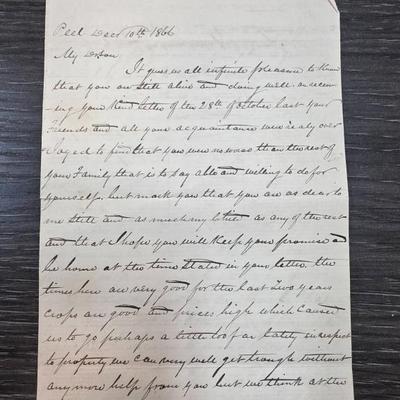 Peel Decr 10th 1866
My D Son
It gives us all infinite pleasure to know
that you are still alive and doing well on receiv
ing your kind letter of the 28th of October last your
Friends and all your acquaintance were realy over
Joyed to find that you were no worse than the rest of
your Family that is to say able and willing to do for
yourself. but mark you that you are as dear to
me still and as much my child as any of the rest
and that I hope you will keep your promise and
be home at the time stated in your letter. the
times here are very good for the last two years
crops are good and prices high which caused
us to go perhaps a little loof as lately in respect
to property we can very well get through without
any more help from you but we think at the